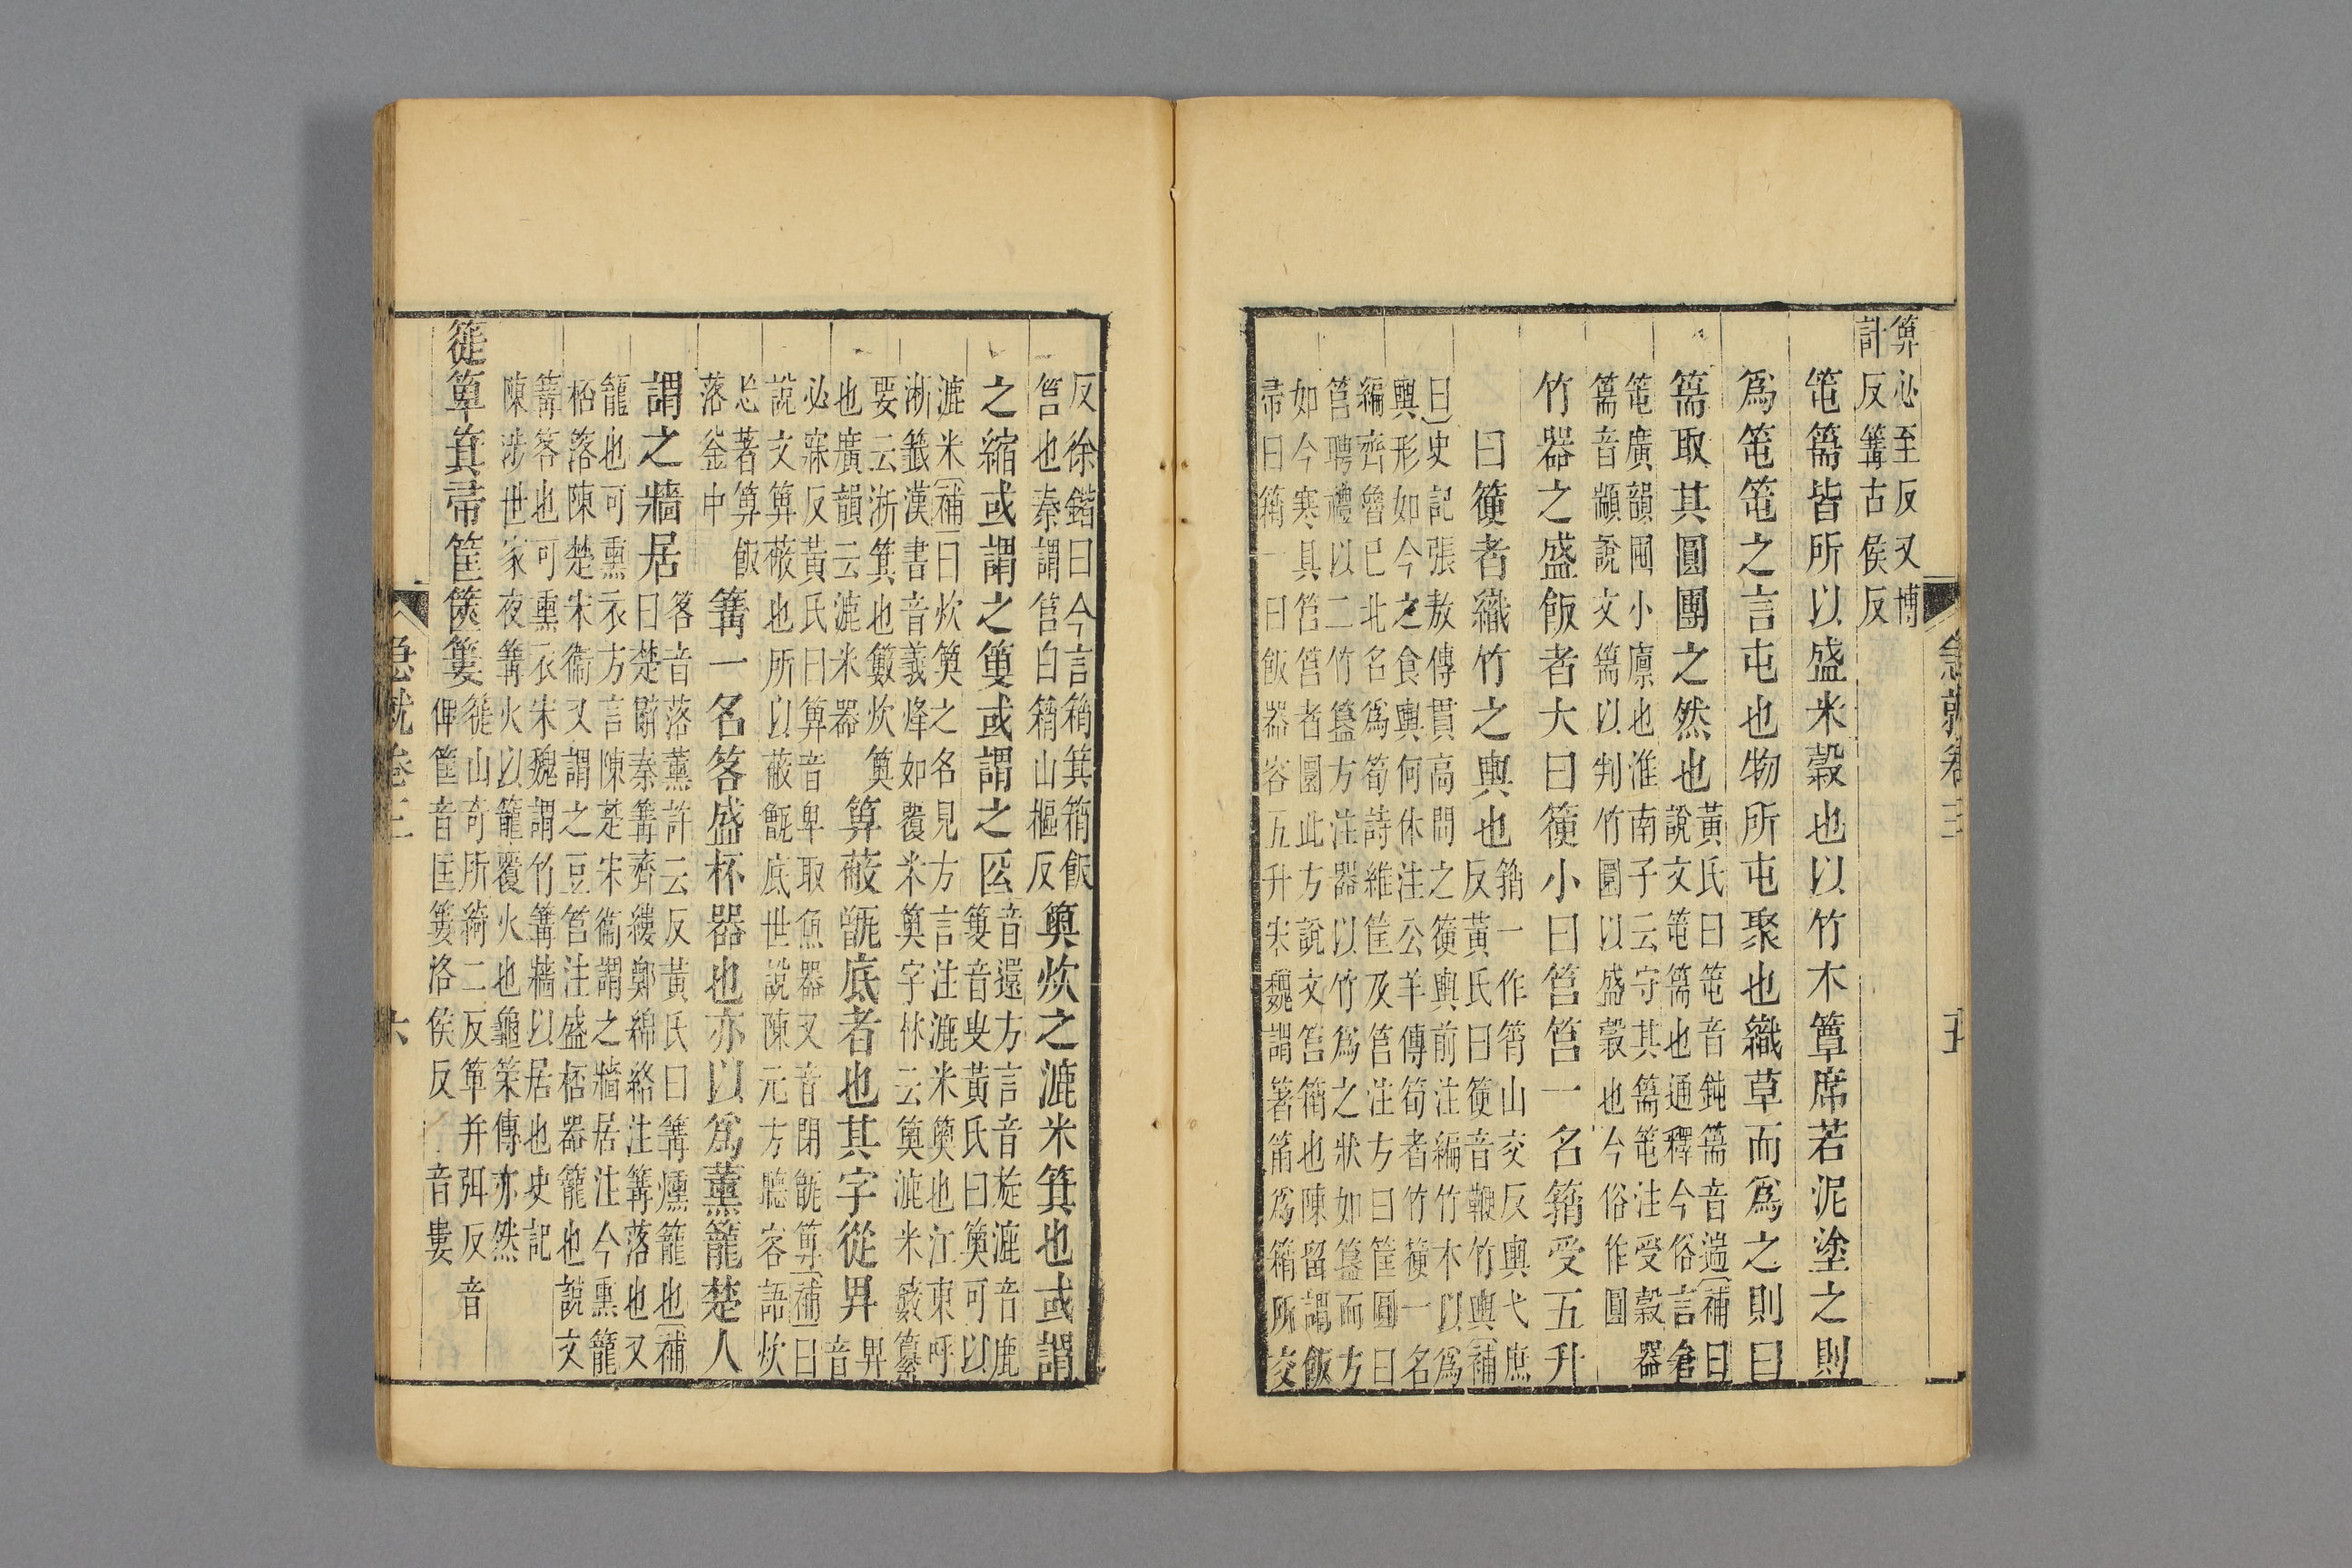 箅必至反又博
計反篝古侯反
䇬篅皆所以盛米穀也以竹木簟席若泥塗之則
爲䇬䇬之言屯也物所屯聚也織草而爲之則曰
篅取其圓團之然也黃氏曰䇬音鈍篅音遄補曰
說文䇬篅也通釋今俗言倉
䇬廣韻囤小廩也淮南子云守其篅䇬注受穀器
篅音顓說文篅以判竹圜以盛穀也今俗作圓
竹器之盛飯者大曰籅小曰筥筥一名䈰受五升
曰籅者織竹之輿也䈰一作筲山交反輿弋庶
反黃氏曰箯音鞭竹輿補
曰史記張敖傳貫高問之箯輿前注編竹木以爲
輿形如今之食輿何休注公羊傳筍者竹箯一名
編齊魯已北名爲筍詩維筐及筥注方曰筐圓曰
筥聘禮以二竹簋方注器以竹爲之狀如簋而方
如今寒具筥筥者圜此方說文筥䈰也陳留謂飯
帚曰䈰一曰飯器容五升宋魏謂箸筩爲䈰所交
急就卷三
五
反徐鍇曰今言䈰箕䈰飯
筥也秦謂筥曰䈰山樞反
籅炊之漉米箕也或謂
之縮或謂之䉤或謂之匠音還方言音旋漉音鹿
䉤音叟黃氏曰籅可以
漉米補曰炊籅之名見方言注漉米籅也江東呼
淅籤漢書音義烽如覆米籅字林云籅漉米籔纂
要云淅箕也籔炊籅
也廣韻云漉米器
箅蔽甑底者也其字從畀畀音
必寐反黃氏曰箅音卑取魚器又音閉甑箅補曰
說文箅蔽也所以蔽甑底世說陳元方聽客語炊
忘著箅飯
落釜中
篝一名笿盛杯器也亦以爲薰籠楚人
謂之牆居笿音落薰許云反黃氏曰篝燻籠也補
曰楚辭秦篝齊縷鄭綿絡注篝落也又
籠也可熏衣方言陳楚宋衞謂之牆居注今熏籠
桮落陳楚宋衞又謂之豆筥注盛桮器籠也說文
篝笿也可熏衣宋魏謂竹篝牆以居也史記
陳涉世家夜篝火以籠覆火也龜策傳亦然
簁箄箕帚筐篋簍簁山奇所綺二反箄并弭反音
俾筐音匡簍洛侯反音婁
急就卷三
六